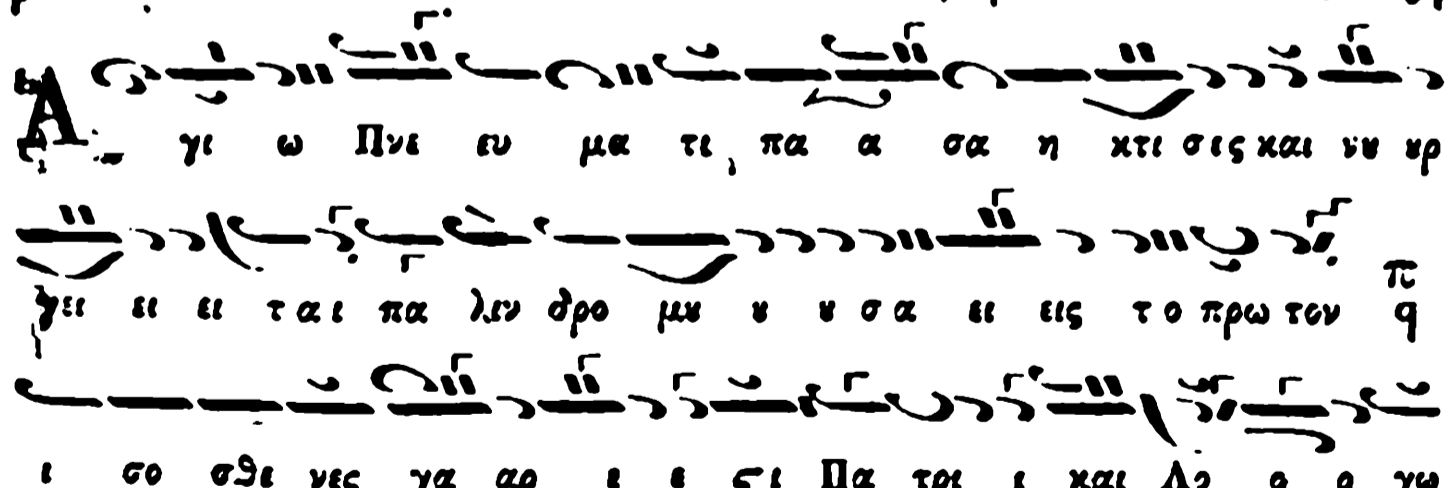 Α γι ω Πνε ευ μα τι, πα α σα η κτι σις και νυ υρ
γει ει ει ται πα λιν δρο μυ υ υ σα ει εις το πρω τον π q
ι σο σθε νες γα αρ ε ε ςι Πα τρι ι και Λο ο ο γω